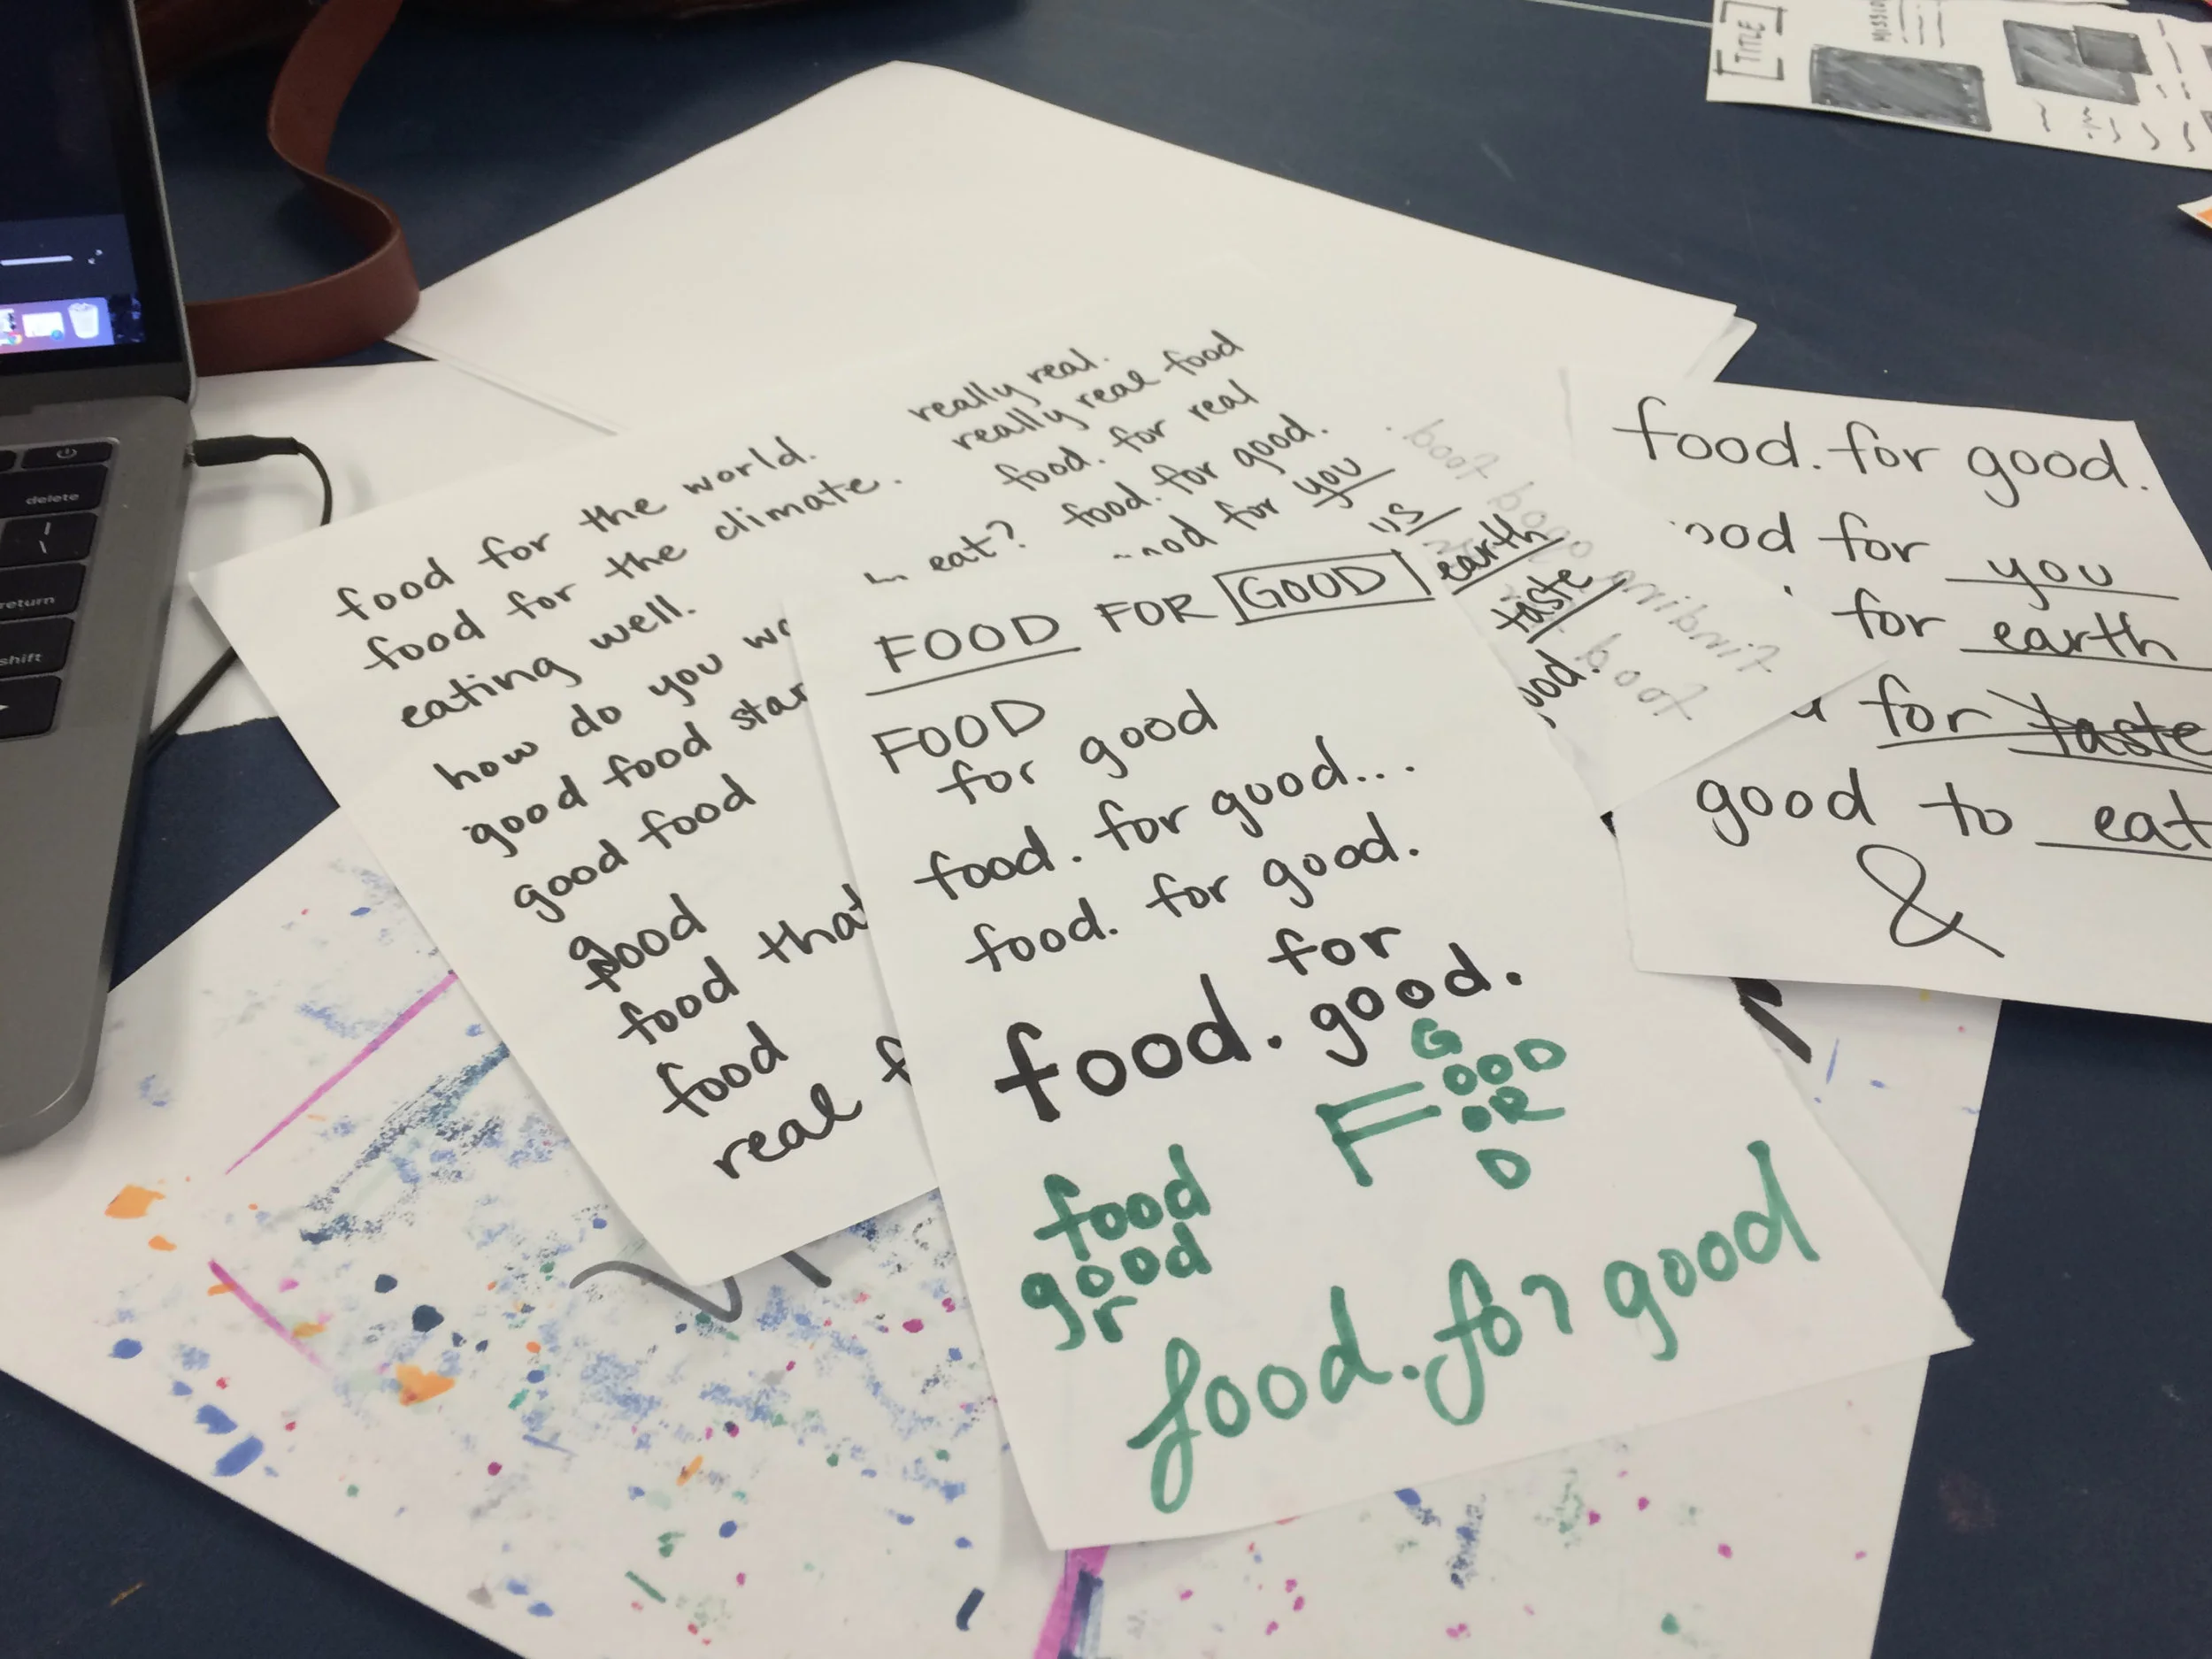 delete
return
shift
[TITLE]
food for the world.
food for the climate.
eating well.
how do you
good food
good food
good
food
food
real
really real.
really real food
food. for real
eat? food. for good.
for you
us
earth
taste
FOOD FOR GOOD
FOOD
for good
food. for good...
food. for good.
for
food. good.
G
FOOD
OR
D
food
good
r
food. for good
food. for good.
for you
for earth
for taste
good to eat
&